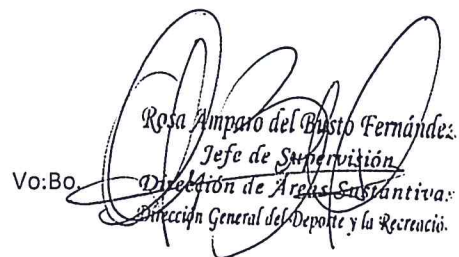 Rosa Amparo del Busto Fernández
Jefe de Supervisión
Vo:Bo. Dirección de Áreas Sustantivas
Dirección General del Deporte y la Recreació.